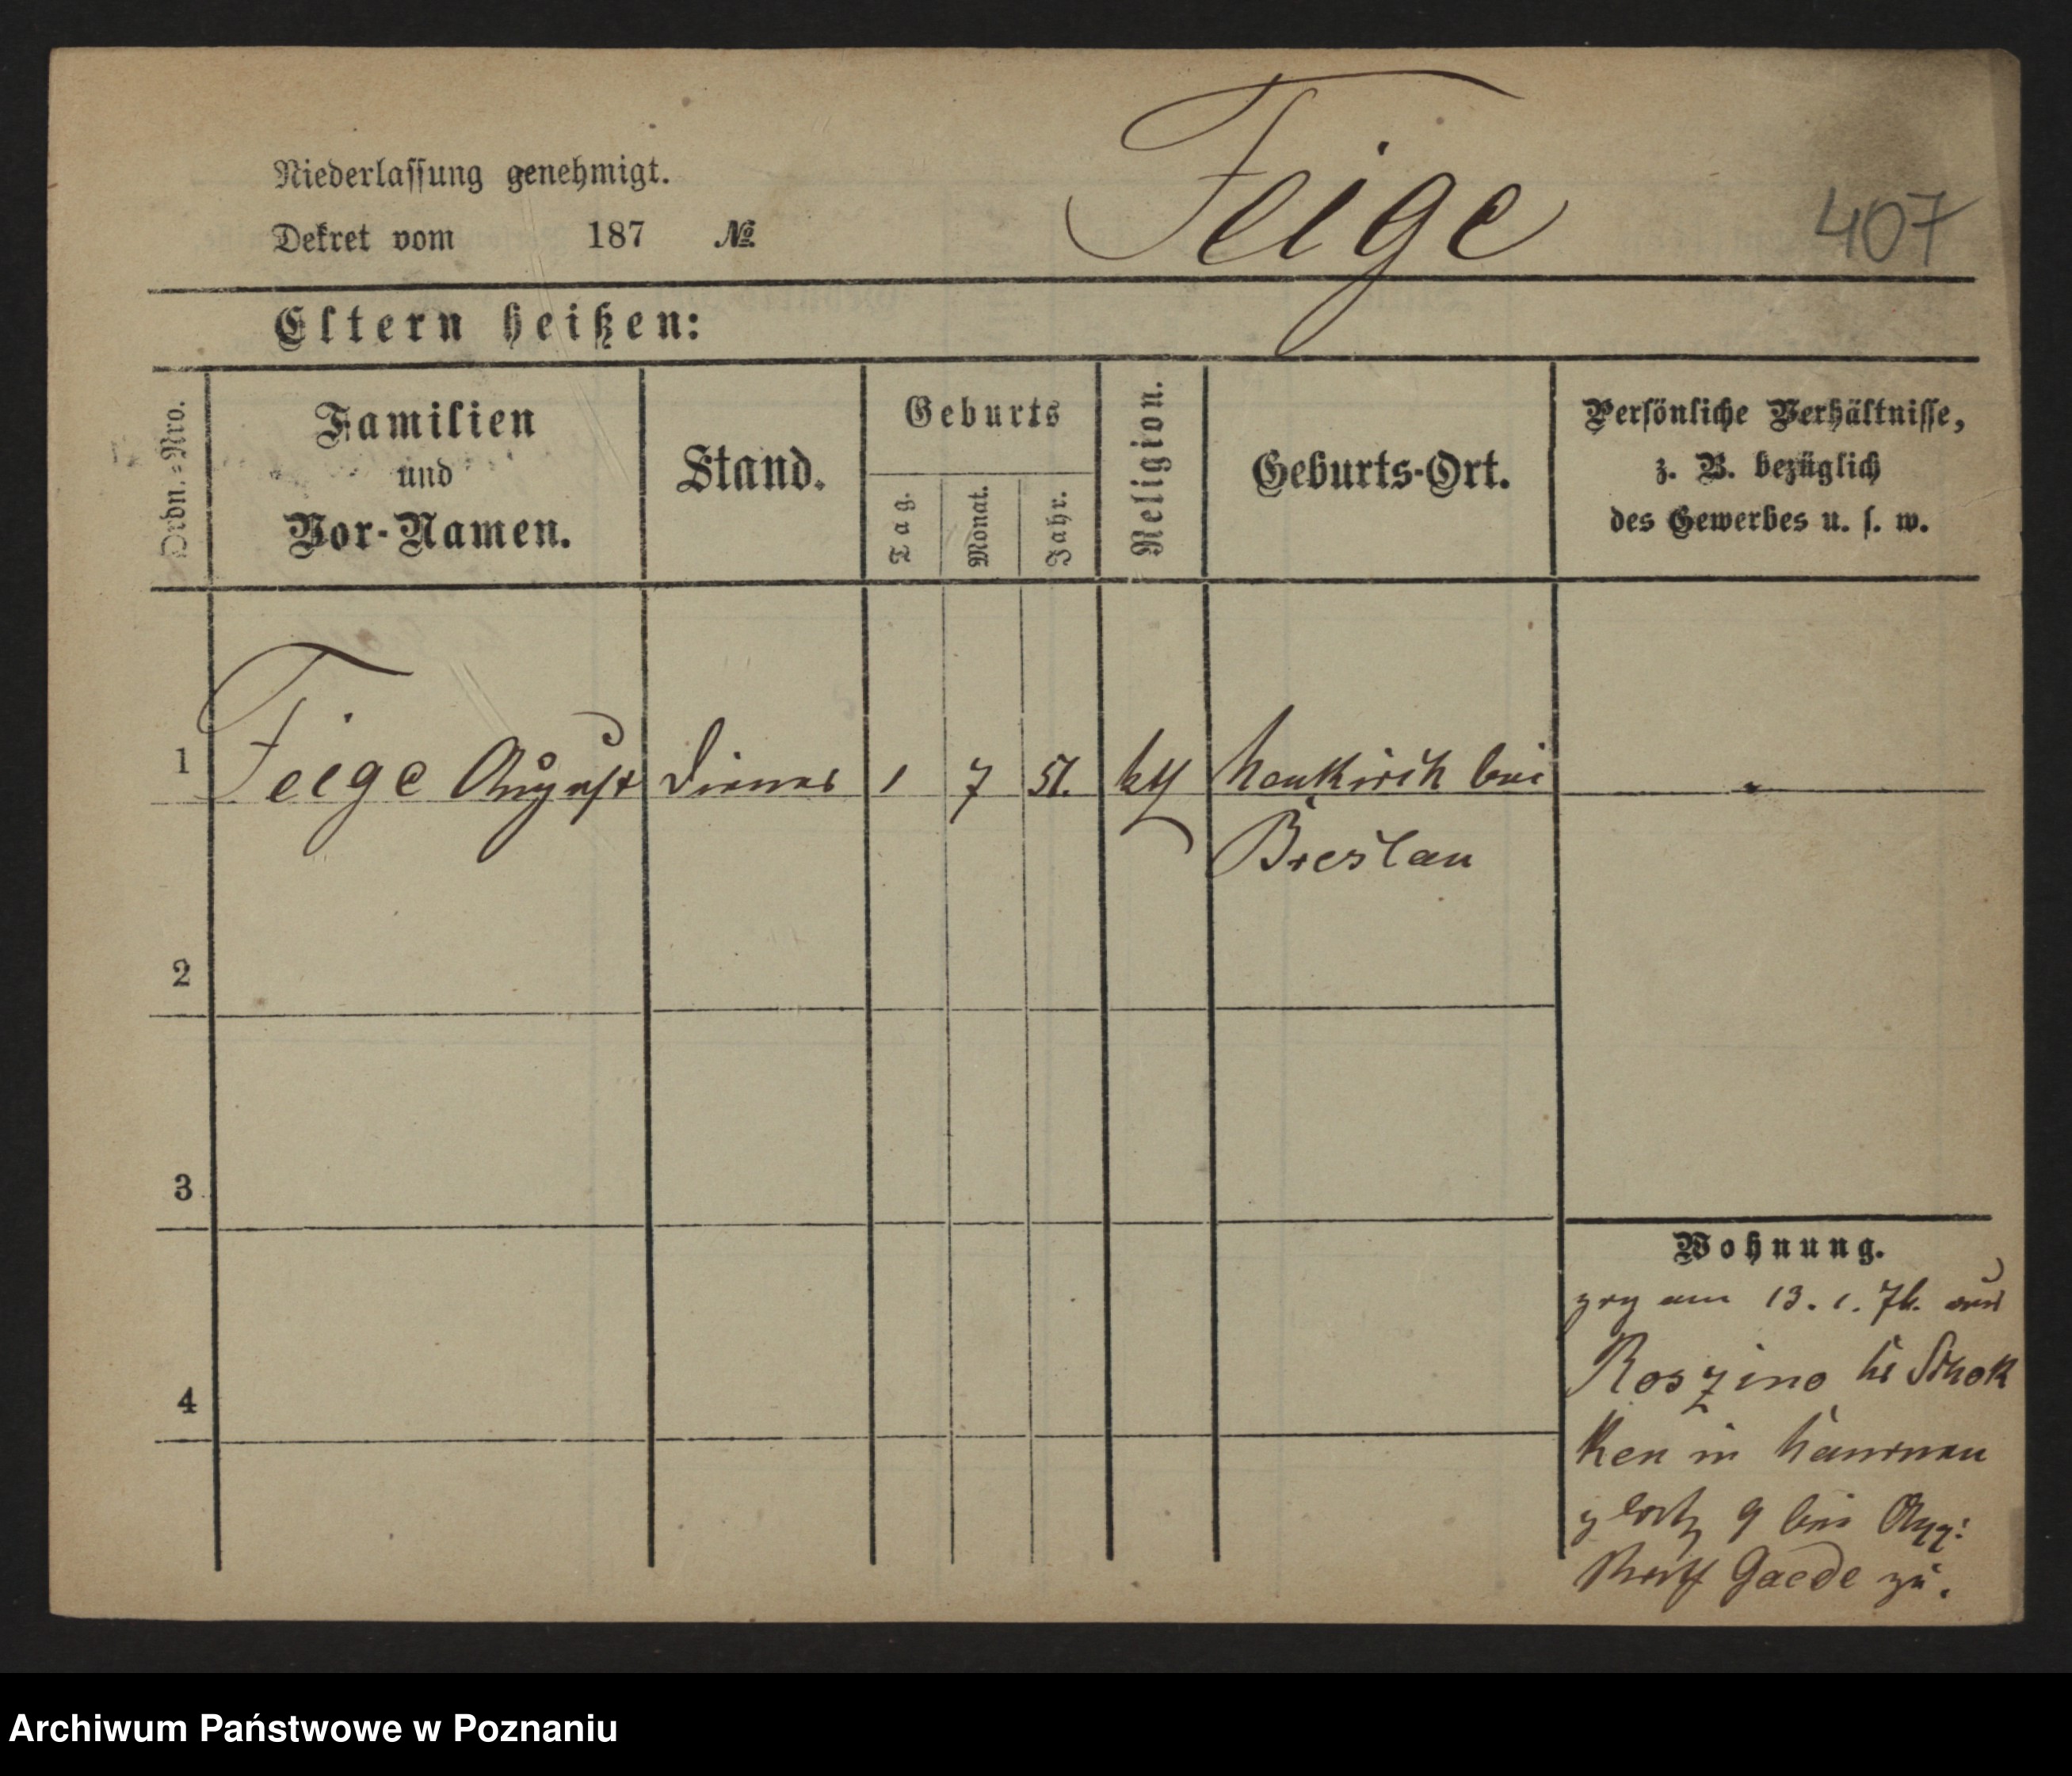 Feige
407
Niederlassung genehmigt.
Dekret vom 187 №
Eltern heißen:
Ordn.-Nro.
Familien
und
Vor-Namen.
Stand.
Geburts
Tag.
Monat.
Jahr.
Religion.
Geburts-Ort.
Persönliche Verhältnisse,
z. B. bezüglich
des Gewerbes u. s. w.
1 Feige August Diener 1 7 51. kth Neukirch bei
Breslau
2
3
4
Wohnung.
zog am 13. 1. 76. aus
Roszino
in
9 bei
Gaede zu.
Archiwum Państwowe w Poznaniu